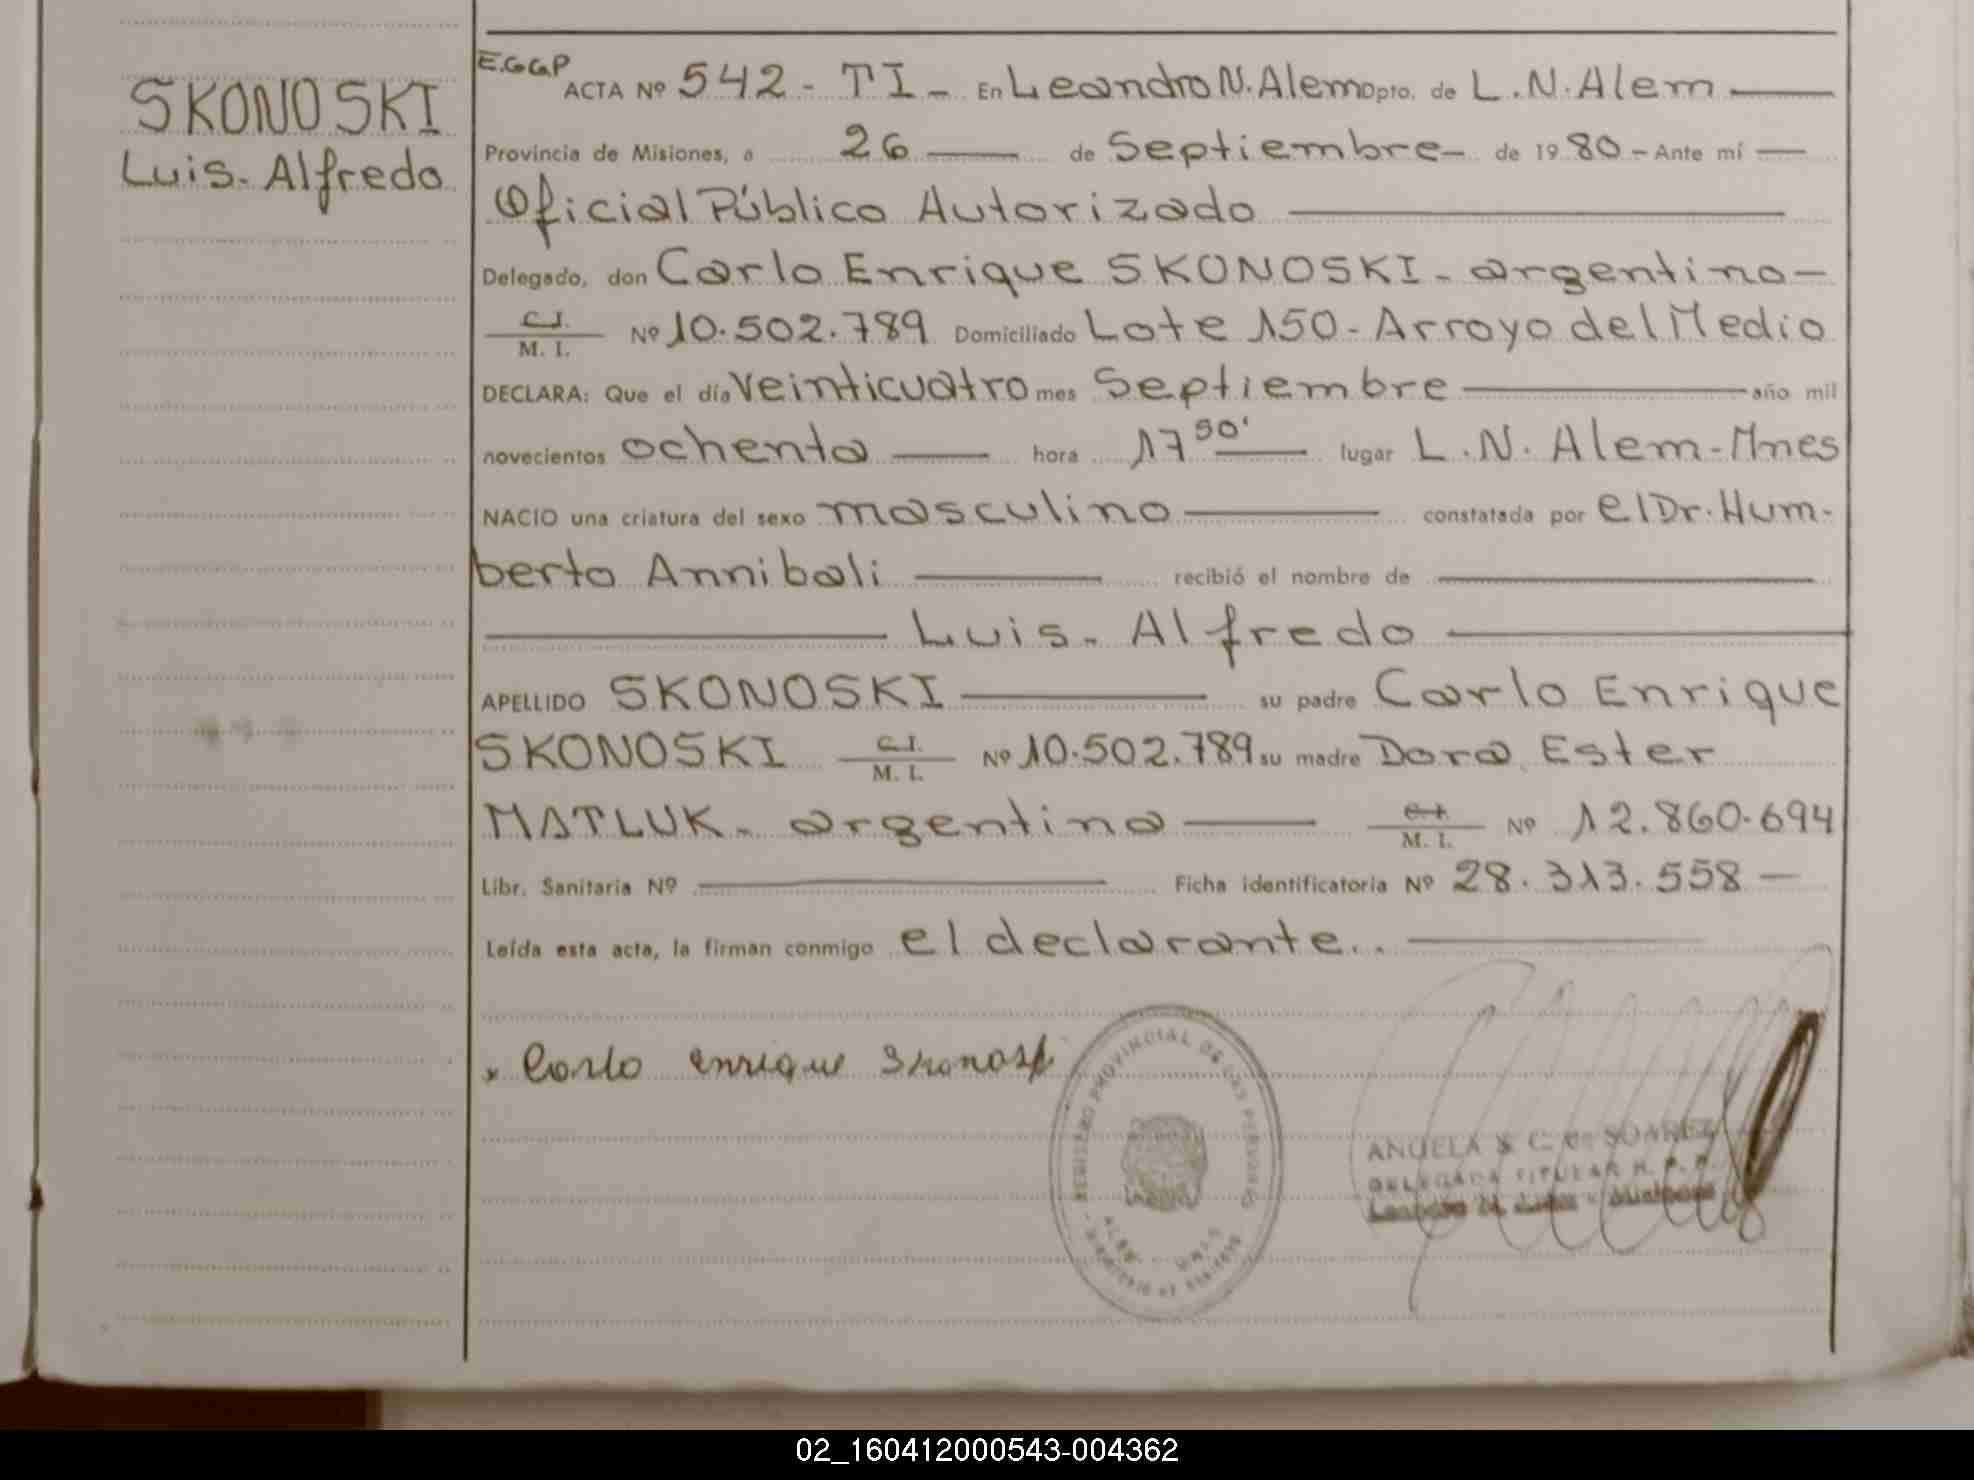 SKONOSKI
Luis-Alfredo
E.G.G.P
ACTA Nº 542- TI- En Leandro N. Alem Dpto. de L.N. Alem
Provincia de Misiones, a 26 de Septiembre- de 1980-Ante mí
Oficial Público Autorizado
Delegado, don Carlo Enrique SKONOSKI- argentino-
C.I.
M. I. Nº 10.502.789 Domiciliado Lote 150-Arroyo del Medio
DECLARA: Que el día veinticuatro mes Septiembre año mil
novecientos ochenta hora 17 50' lugar L.N. Alem-Mnes
NACIO una criatura del sexo masculino constatada por el Dr. Hum-
berto Annibali recibió el nombre de
Luis-Alfredo
APELLIDO SKONOSKI su padre Carlo Enrique
SKONOSKI C.I. M. I. Nº 10.502.789 su madre Dora Ester
MATLUK- argentina C.I. M. I. Nº 12.860.694
Libr. Sanitaria Nº Ficha identificatoria Nº 28.313.558-
Leída esta acta, la firman conmigo el declarante..
x Carlo enrique Skonoski
REGISTRO PROVINCIAL DE LAS PERSONAS
C. de SUAREZ
DELEGADA TITULAR R. P. P.
02_160412000543-004362